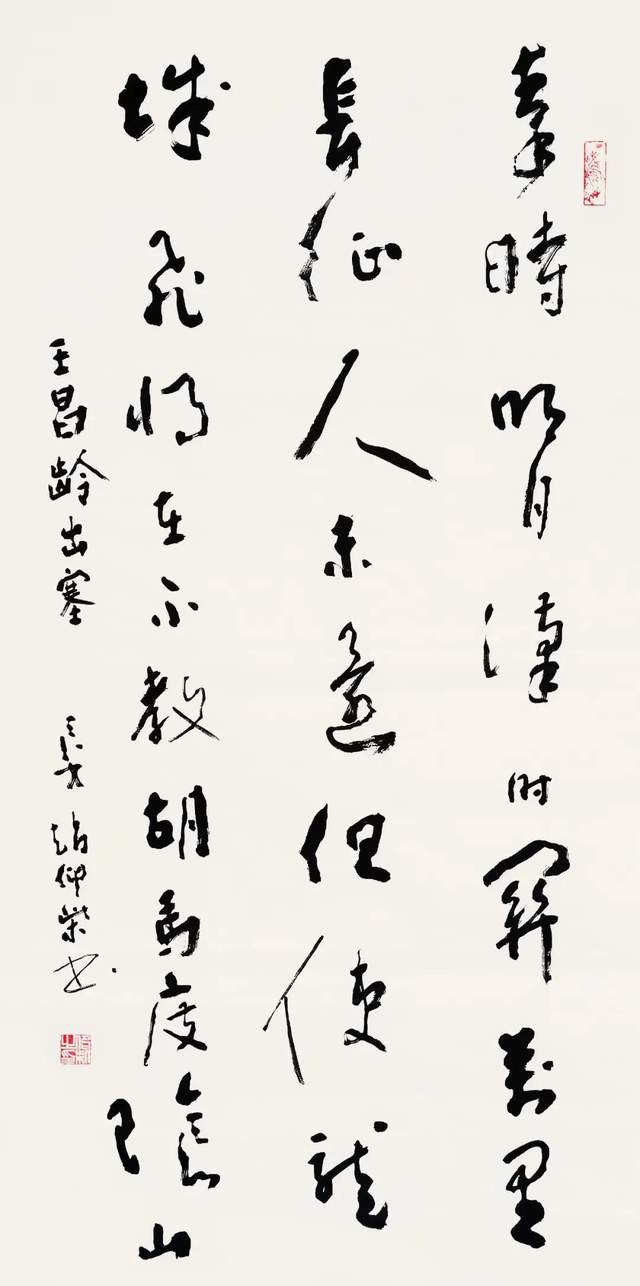 秦時明月漢时關萬里
長征人未還但使龍
城飛将在不教胡馬度陰山
王昌齡出塞
书